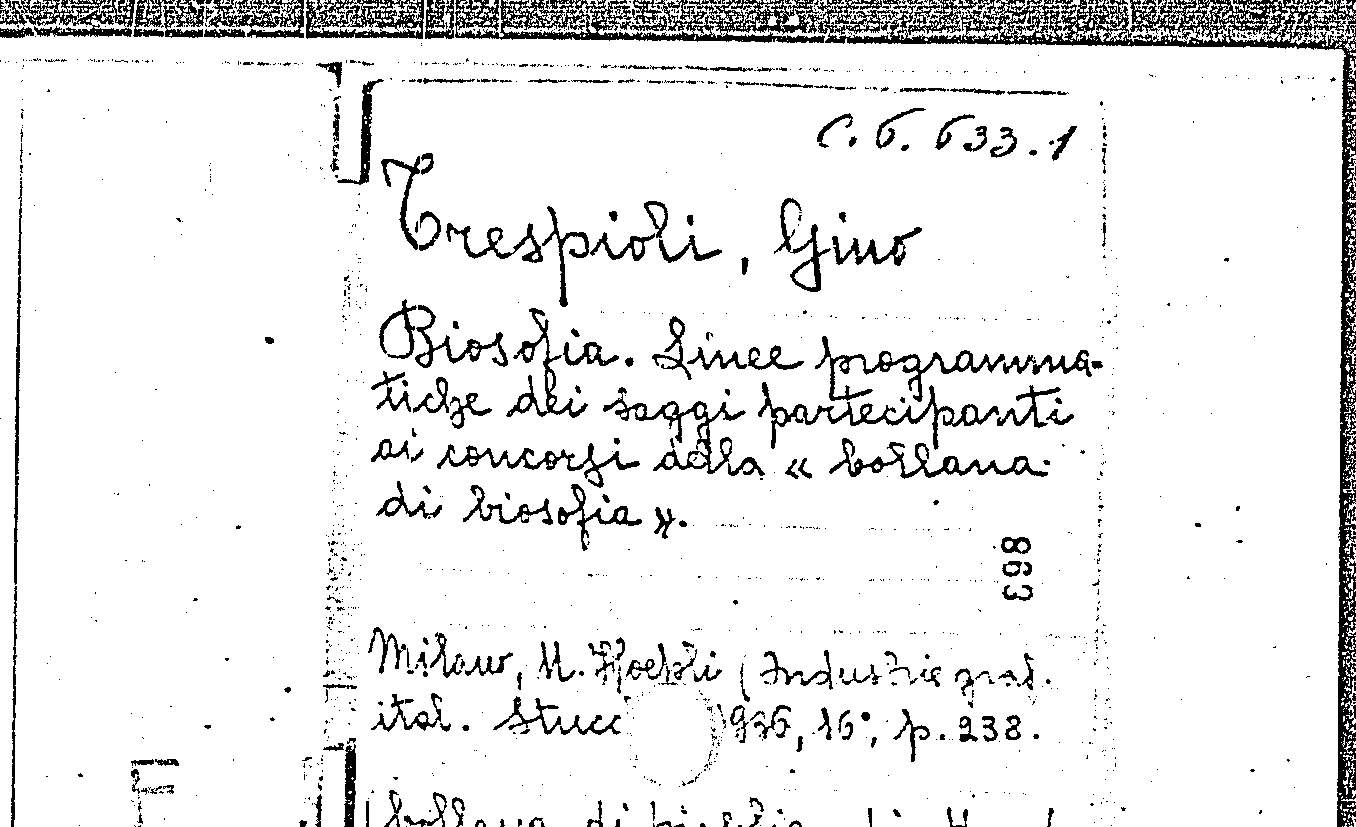 C.6.633.1
Trespioli, Gino
Biosofia. Linee programma-
tiche dei saggi partecipanti
ai concorsi della « collana
di biosofia ».
863
Milano, U. Hoepli (Industrie graf.
ital. Stucc 1936, 16°, p. 238.
collana di